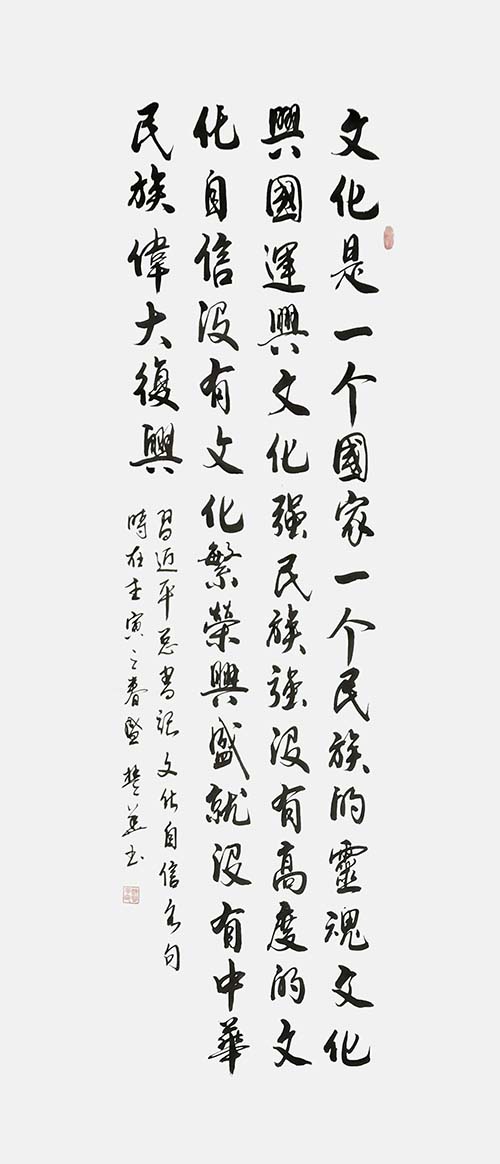 文化是一个國家一个民族的靈魂文化
興國運興文化强民族強没有高度的文
化自信没有文化繁榮興盛就没有中華
民族偉大復興
習近平总書記文化自信句
時在壬寅之春盛书